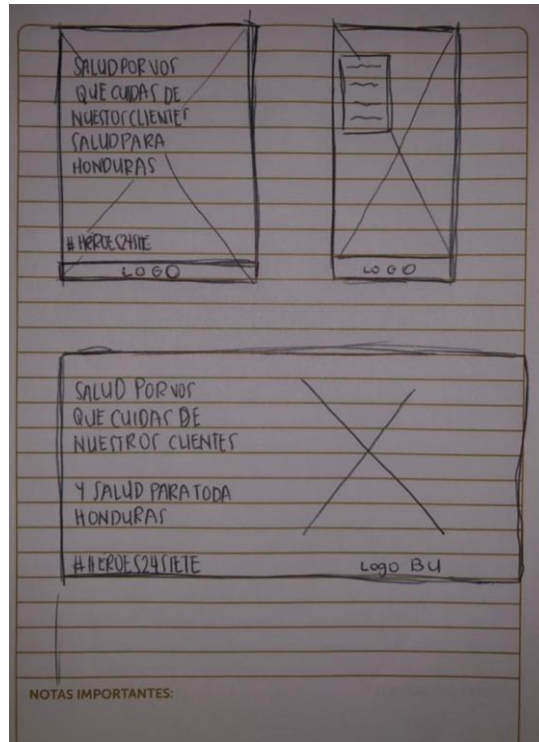 SALUD POR VOS
QUE CUIDAS DE
NUESTOS CLIENTES
SALUD PARA
HONDURAS
#HEROES24SIETE
LOGO
LOGO
SALUD POR VOS
QUE CUIDAS DE
NUESTROS CLIENTES
Y SALUD PARA TODA
HONDURAS
#HEROES24SIETE
Logo BU
NOTAS IMPORTANTES: